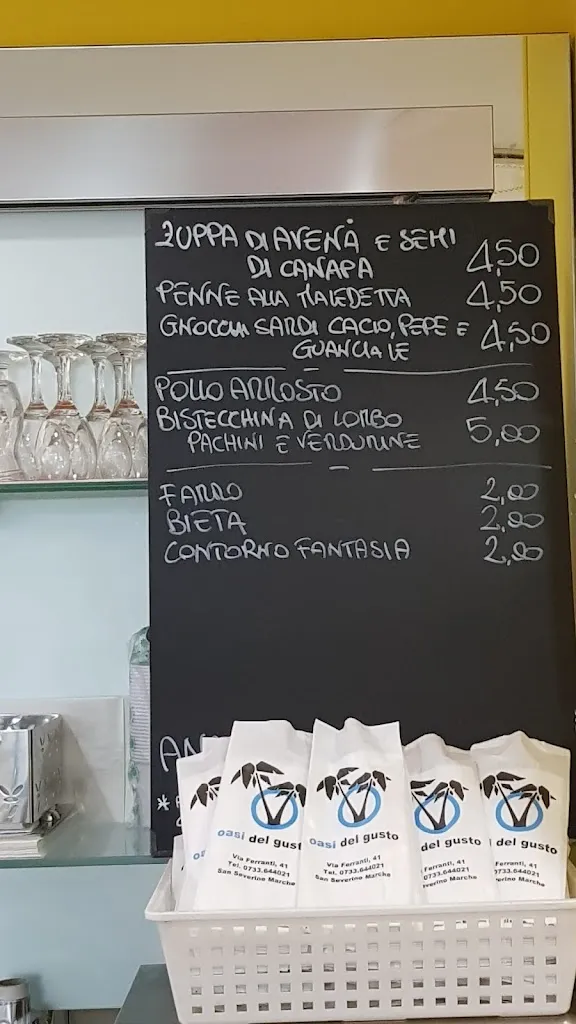 ZUPPA DI AVENA E SEMI 4,50
DI CANAPA
PENNE ALLA MALEDETTA 4,50
GNOCCHI SARDI CACIO, PEPE E 4,50
GUANCIALE
POLLO ARROSTO 4,50
BISTECCHINA DI LOMBO 5,00
PACHINI E VERDURINE
FARRO 2,00
BIETA 2,00
CONTORNO FANTASIA 2,00
oasi del gusto
Via Ferranti, 41
Tel. 0733.644021
San Severino Marche
oasi del gusto
Via Ferranti, 41
Tel. 0733.644021
San Severino Marche
del gusto
Ferranti, 41
0733.644021
verino Marche
del gusto
Ferranti, 41
0733.644021
verino Marche